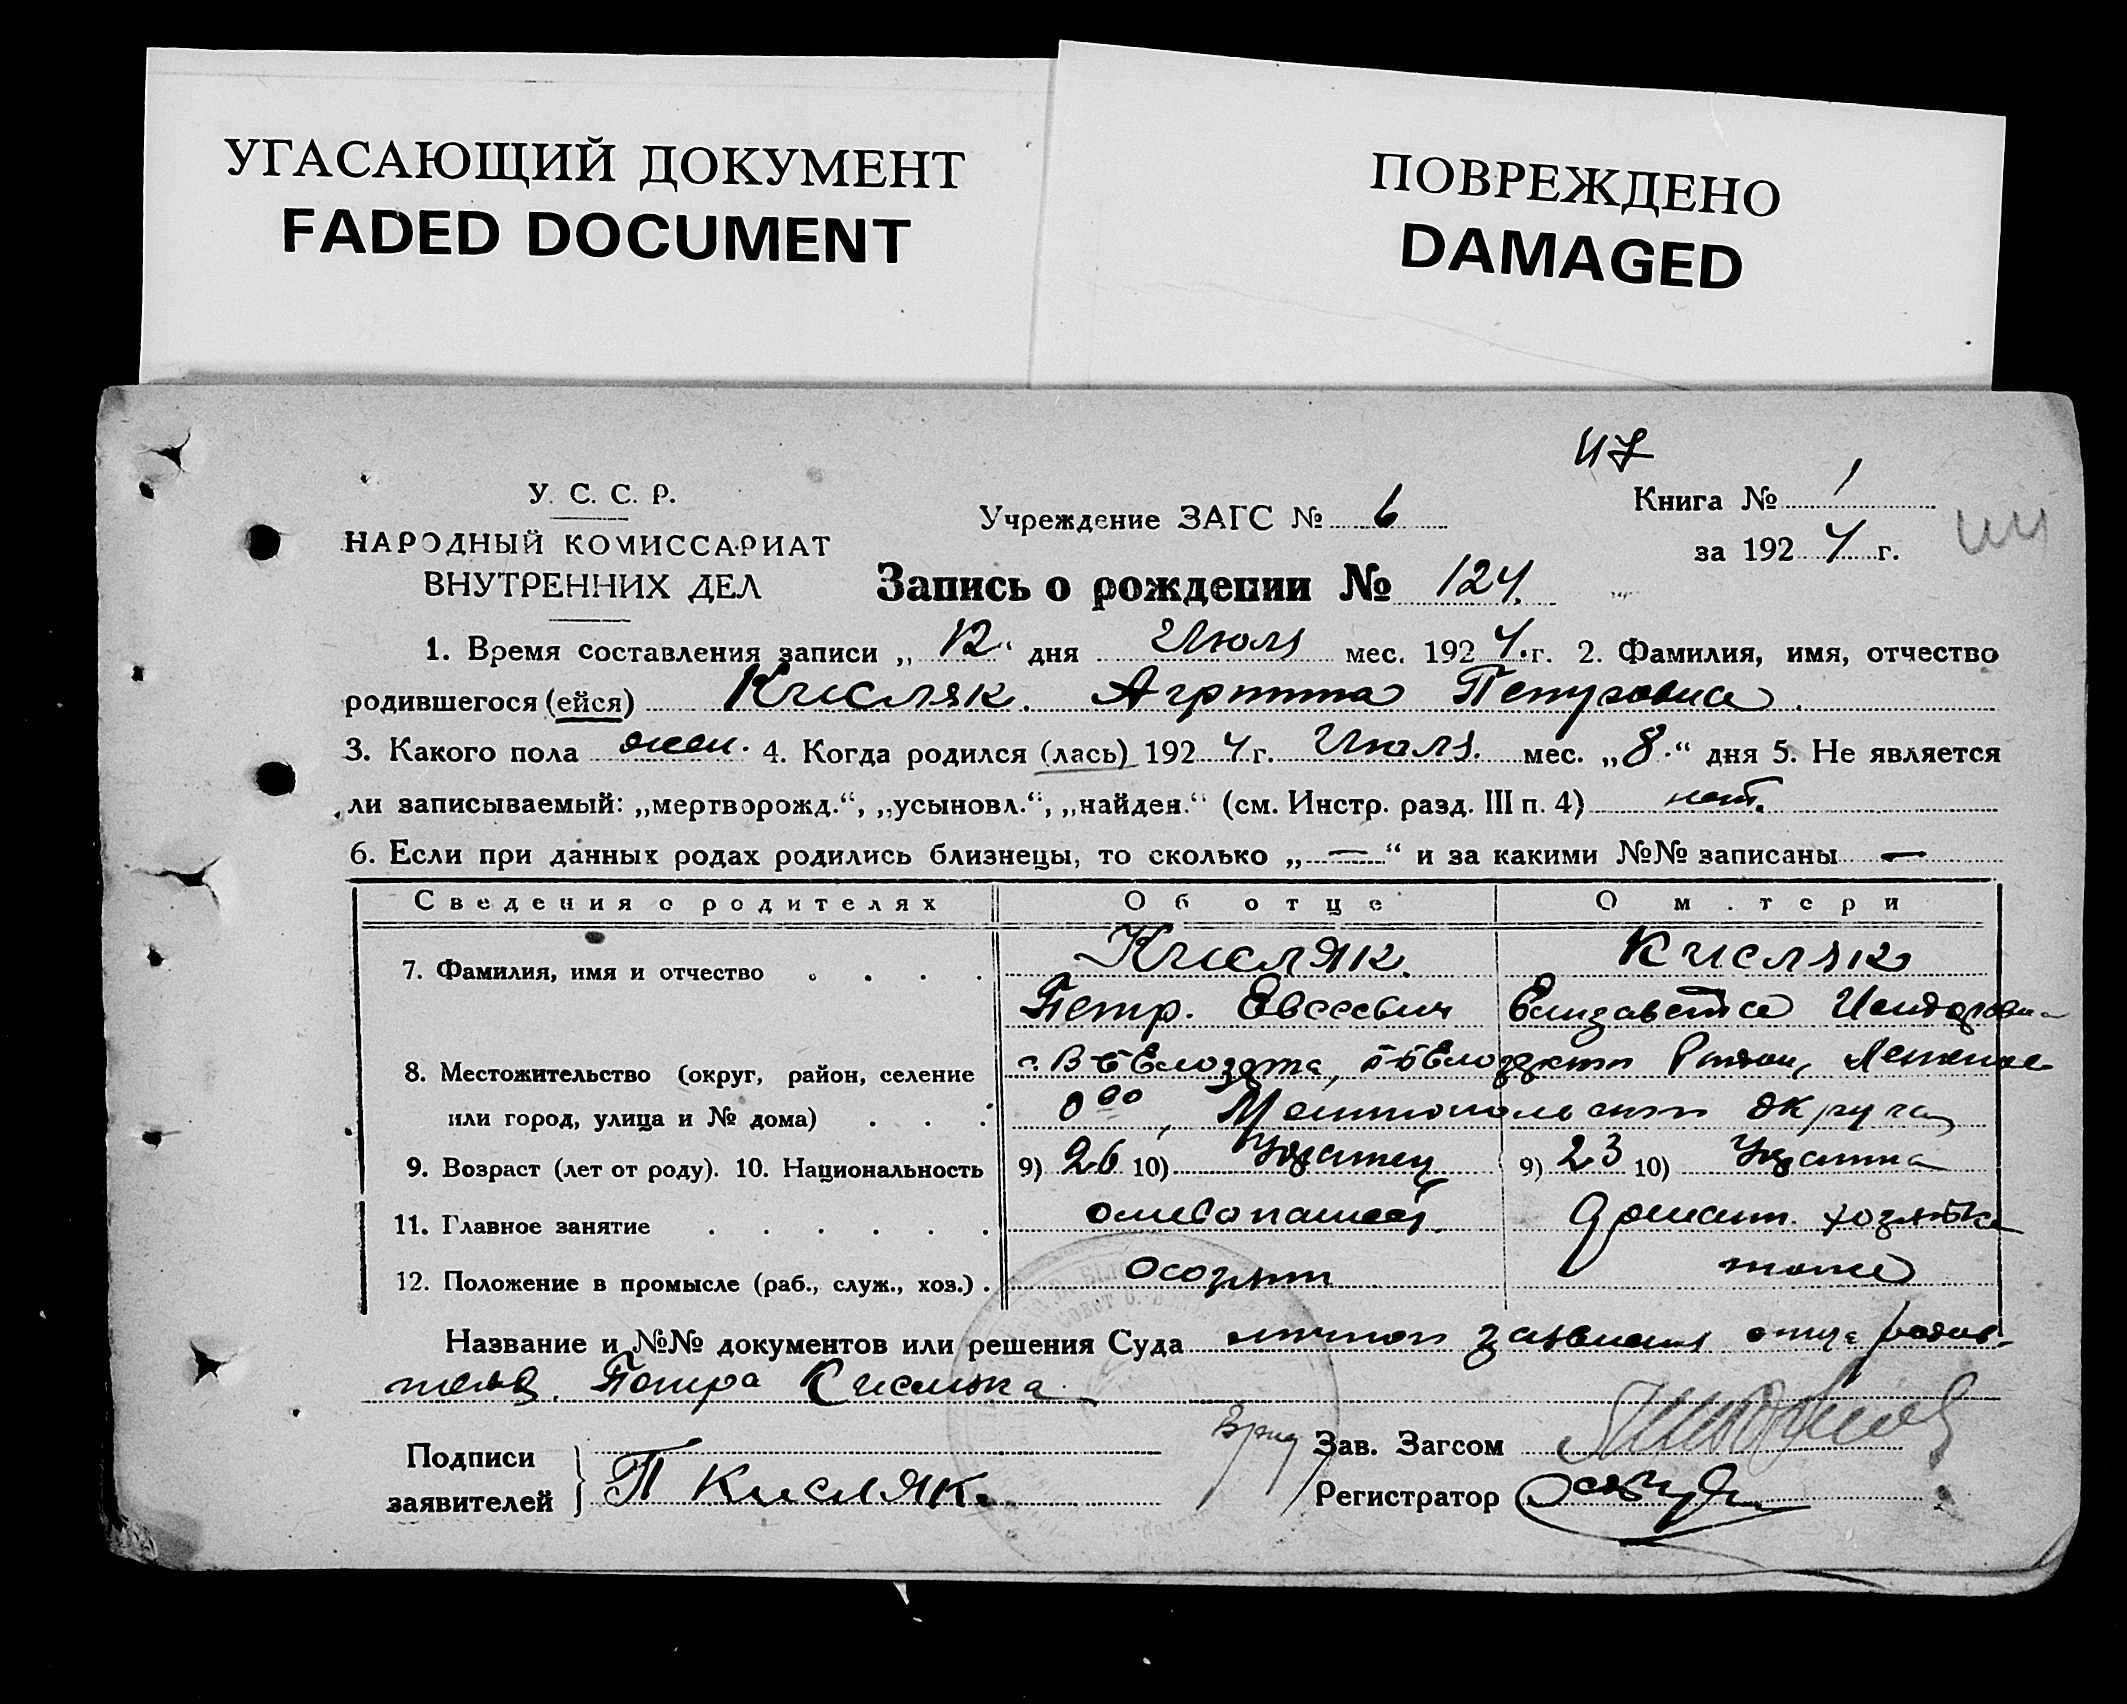 УГАСАЮЩИЙ ДОКУМЕНТ
FADED DOCUMENT
ПОВРЕЖДЕНО
DAMAGED
У. С. С. Р.
НАРОДНЫЙ КОМИССАРИАТ
ВНУТРЕННИХ ДЕЛ
Учреждение ЗАГС № 6
Книга № 1
за 1924 г.
Запись о рождении № 124.
1. Время составления записи „12“ дня Июля мес. 1924. г. 2. Фамилия, имя, отчество
родившегося (ейся) Кисляк. Агрипина Петровна.
3. Какого пола жен. 4. Когда родился (лась) 1924 г. Июля. мес. „8.“ дня 5. Не является
ли записываемый: „мертворожд.“, „усыновл.“, „найден.“ (см. Инстр. разд. III п. 4) нет.
6. Если при данных родах родились близнецы, то сколько „—“ и за какими №№ записаны —
Сведения о родителях Об отце О м.тери
7. Фамилия, имя и отчество Кисляк. Кисляк
Петр. Евсеевич Елизавета
8. Местожительство (округ, район, селение
или город, улица и № дома) округа
9. Возраст (лет от роду). 10. Национальность 9) 26 10) 9) 23 10)
11. Главное занятие Домашн. хозяйка
12. Положение в промысле (раб., служ., хоз.) тоже
Название и №№ документов или решения Суда отца
Петра Кисляка
Подписи
заявителей } П Кисляк.
Врид Зав. Загсом
Регистратор